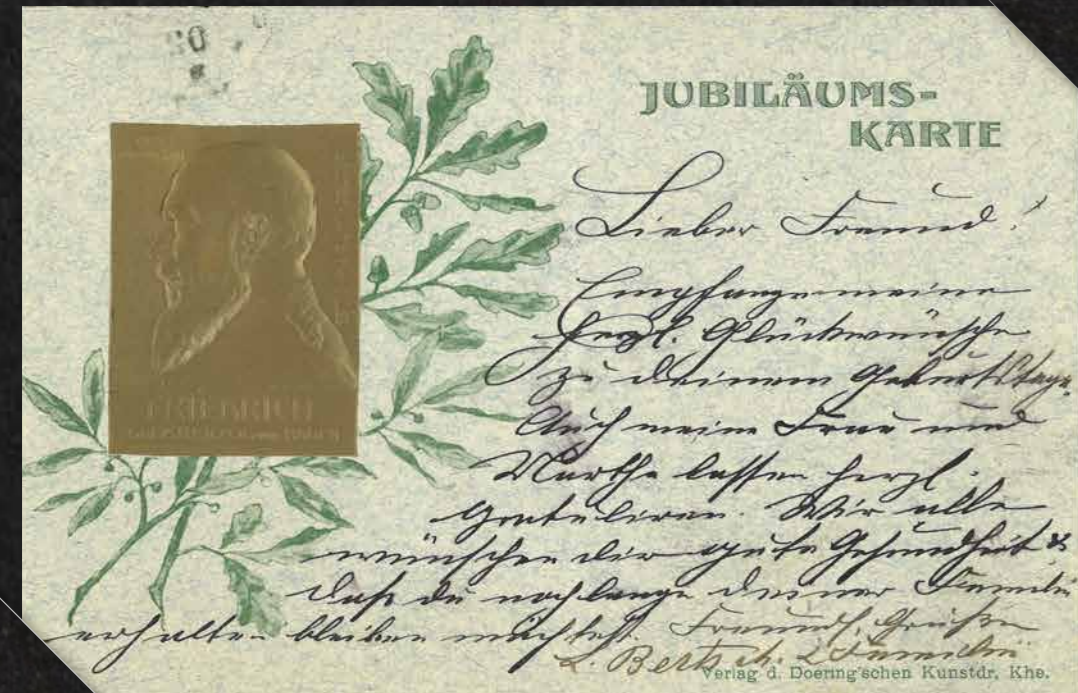 JUBILÄUMS-
KARTE
Lieber Freund!
Empfange meine
herzl. Glückwünsche
zu deinem Geburtstage.
Auch meine Frau und
Martha lassen herzl.
gratuliren. Wir alle
wünschen dir gute Gesundheit &
daß du noch lange deiner Familie
erhalten bleiben möchtest. Freundl. Grüßen
L. Bertsch & Familie
FRIEDRICH
Verlag d. Doering'schen Kunstdr, Khe.